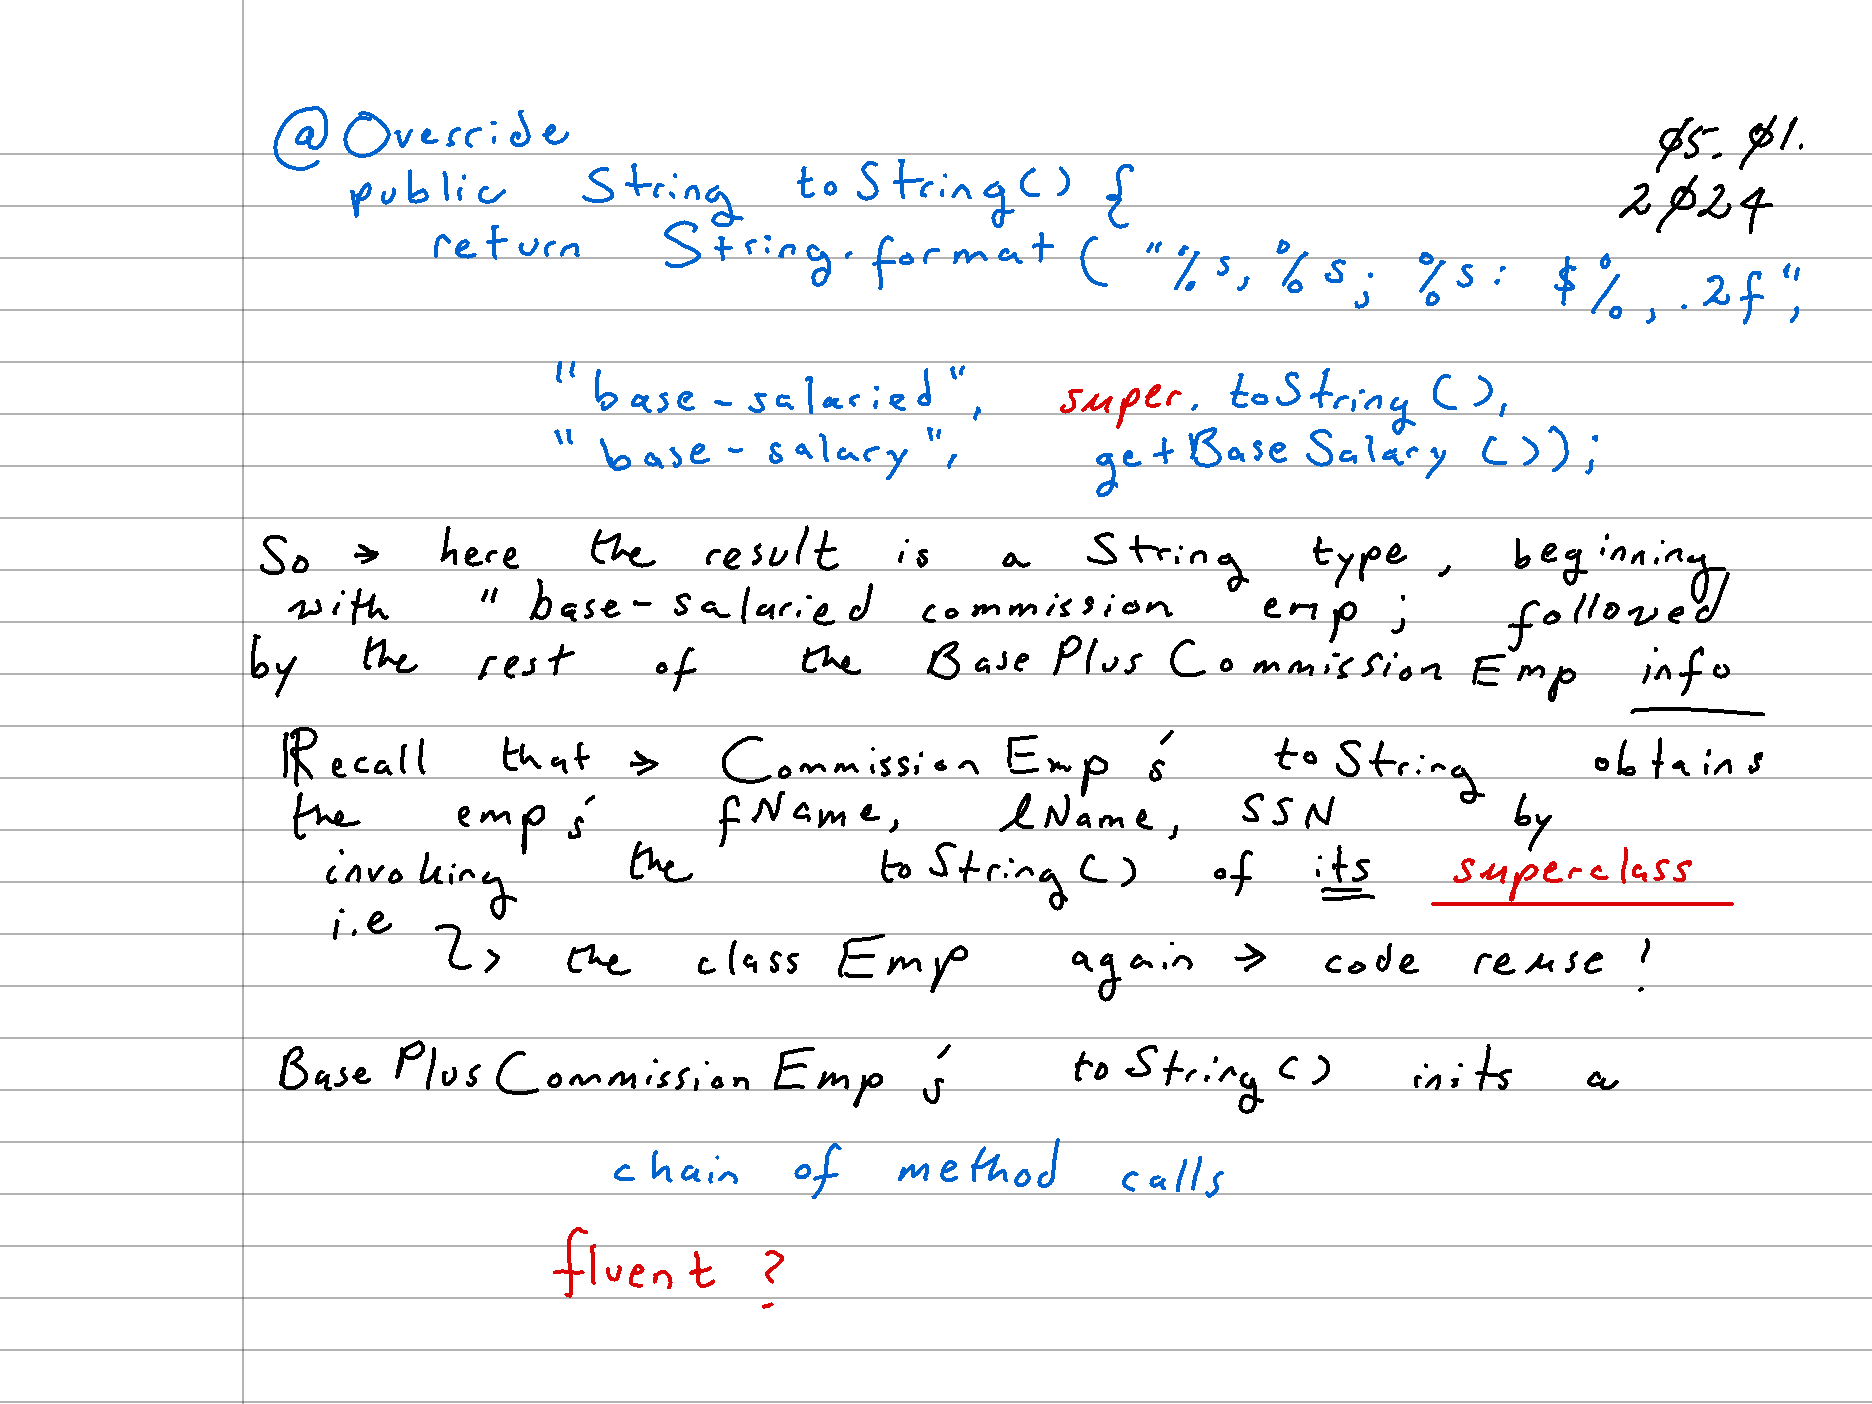 @Override
Ø5. Ø1.
2Ø24
public String toString() {
return String.format( "%s, %s; %s: $%,.2f",
"base-salaried", super. toString(),
"base-salary", getBaseSalary ());
So → here the result is a String type, beginning
with "base-salaried commission emp; followed
by the rest of the BasePlusCommissionEmp info
Recall that → CommissionEmp's toString obtains
the emp's fName, lName, SSN by
invoking the toString() of its superclass
i.e
↳ the class Emp again → code reuse!
BasePlusCommissionEmp's toString() inits a
chain of method calls
fluent?